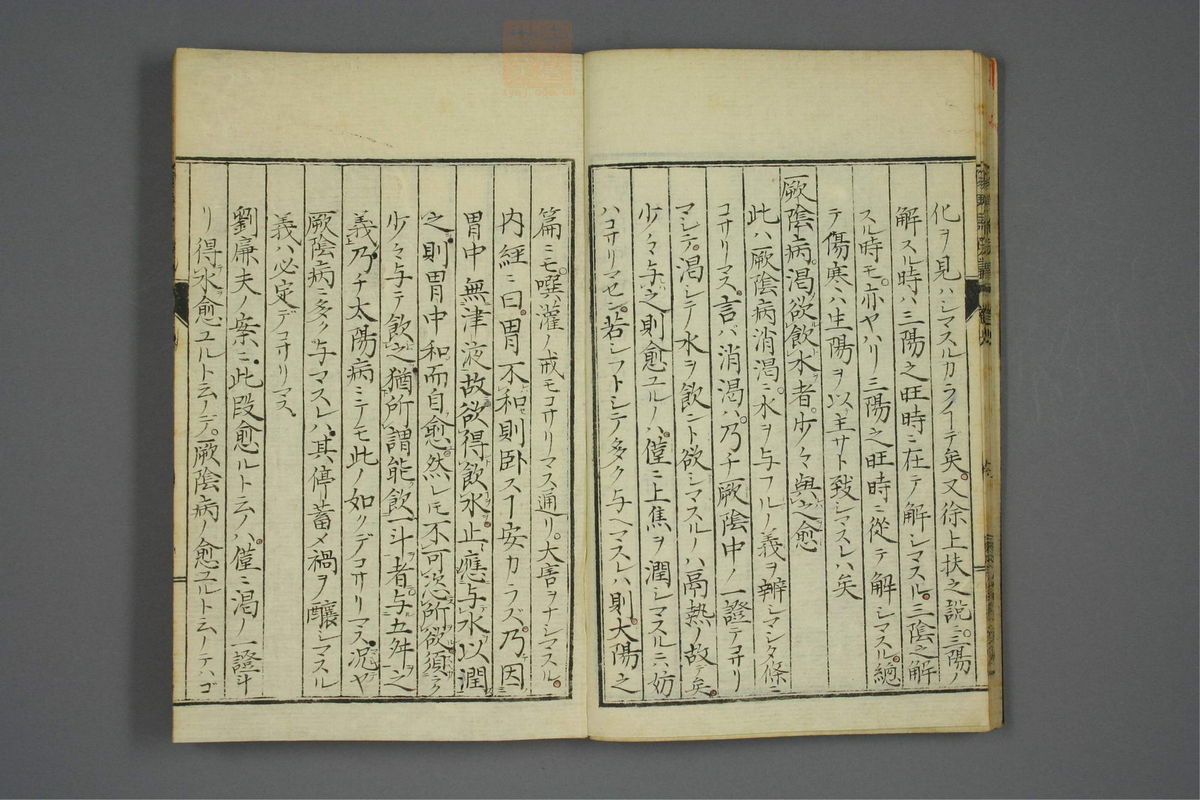 化ヲ見ハシマスルカライテ矣。又徐上扶之説ニ三陽ノ
解スル時ハ三陽之旺時ニ在テ解シマスル。三陰之解
スル時モ。亦ヤハリ三陽之旺時ニ從テ解シマスル。總
テ傷寒ハ生陽ヲ以主サト致シマスレハ矣
厥陰病。渇欲飲水者。少々與之愈
此ハ厥陰病消渇ニ。水ヲ与フルノ義ヲ辨マシタ條ニ
コサリマス。言バ消渇ハ。乃チ厥陰中ノ一證テコサリ
マシテ。渇シテ水ヲ飲ント欲シマスルノハ鬲熱ノ故テ矣。
少々与之則愈ユルノハ。僅ニ上焦ヲ潤シマスルニハ妨
ハコサリマセン。若シフトシテ多ク与ヘマスレハ則。太陽之
篇ニモ。噀灌ノ戒モコサリマス通リ。大害ヲナシマスル。
内経ニ曰。胃不和則卧スヿ安カラズ。乃因
胃中無津液故欲得飲水止應与水以潤
之則胃中和而自愈。然レ𪜈不可恣所欲須ク
少々与テ飲之猶所謂能飲一斗者。与五舛之
義。乃チ太陽病ニテモ此ノ如クデコサリマス。况ヤ
厥陰病ニ多ク与マスレハ。其停蓄メ禍ヲ醸シマスル
義ハ必定デコサリマス
劉廉夫ノ案ニ。此段愈ルト云ノハ。僅ニ渇ノ一證斗
リ得水愈ユルト云ノデ。厥陰病ノ愈ユルト云ノテハゴ